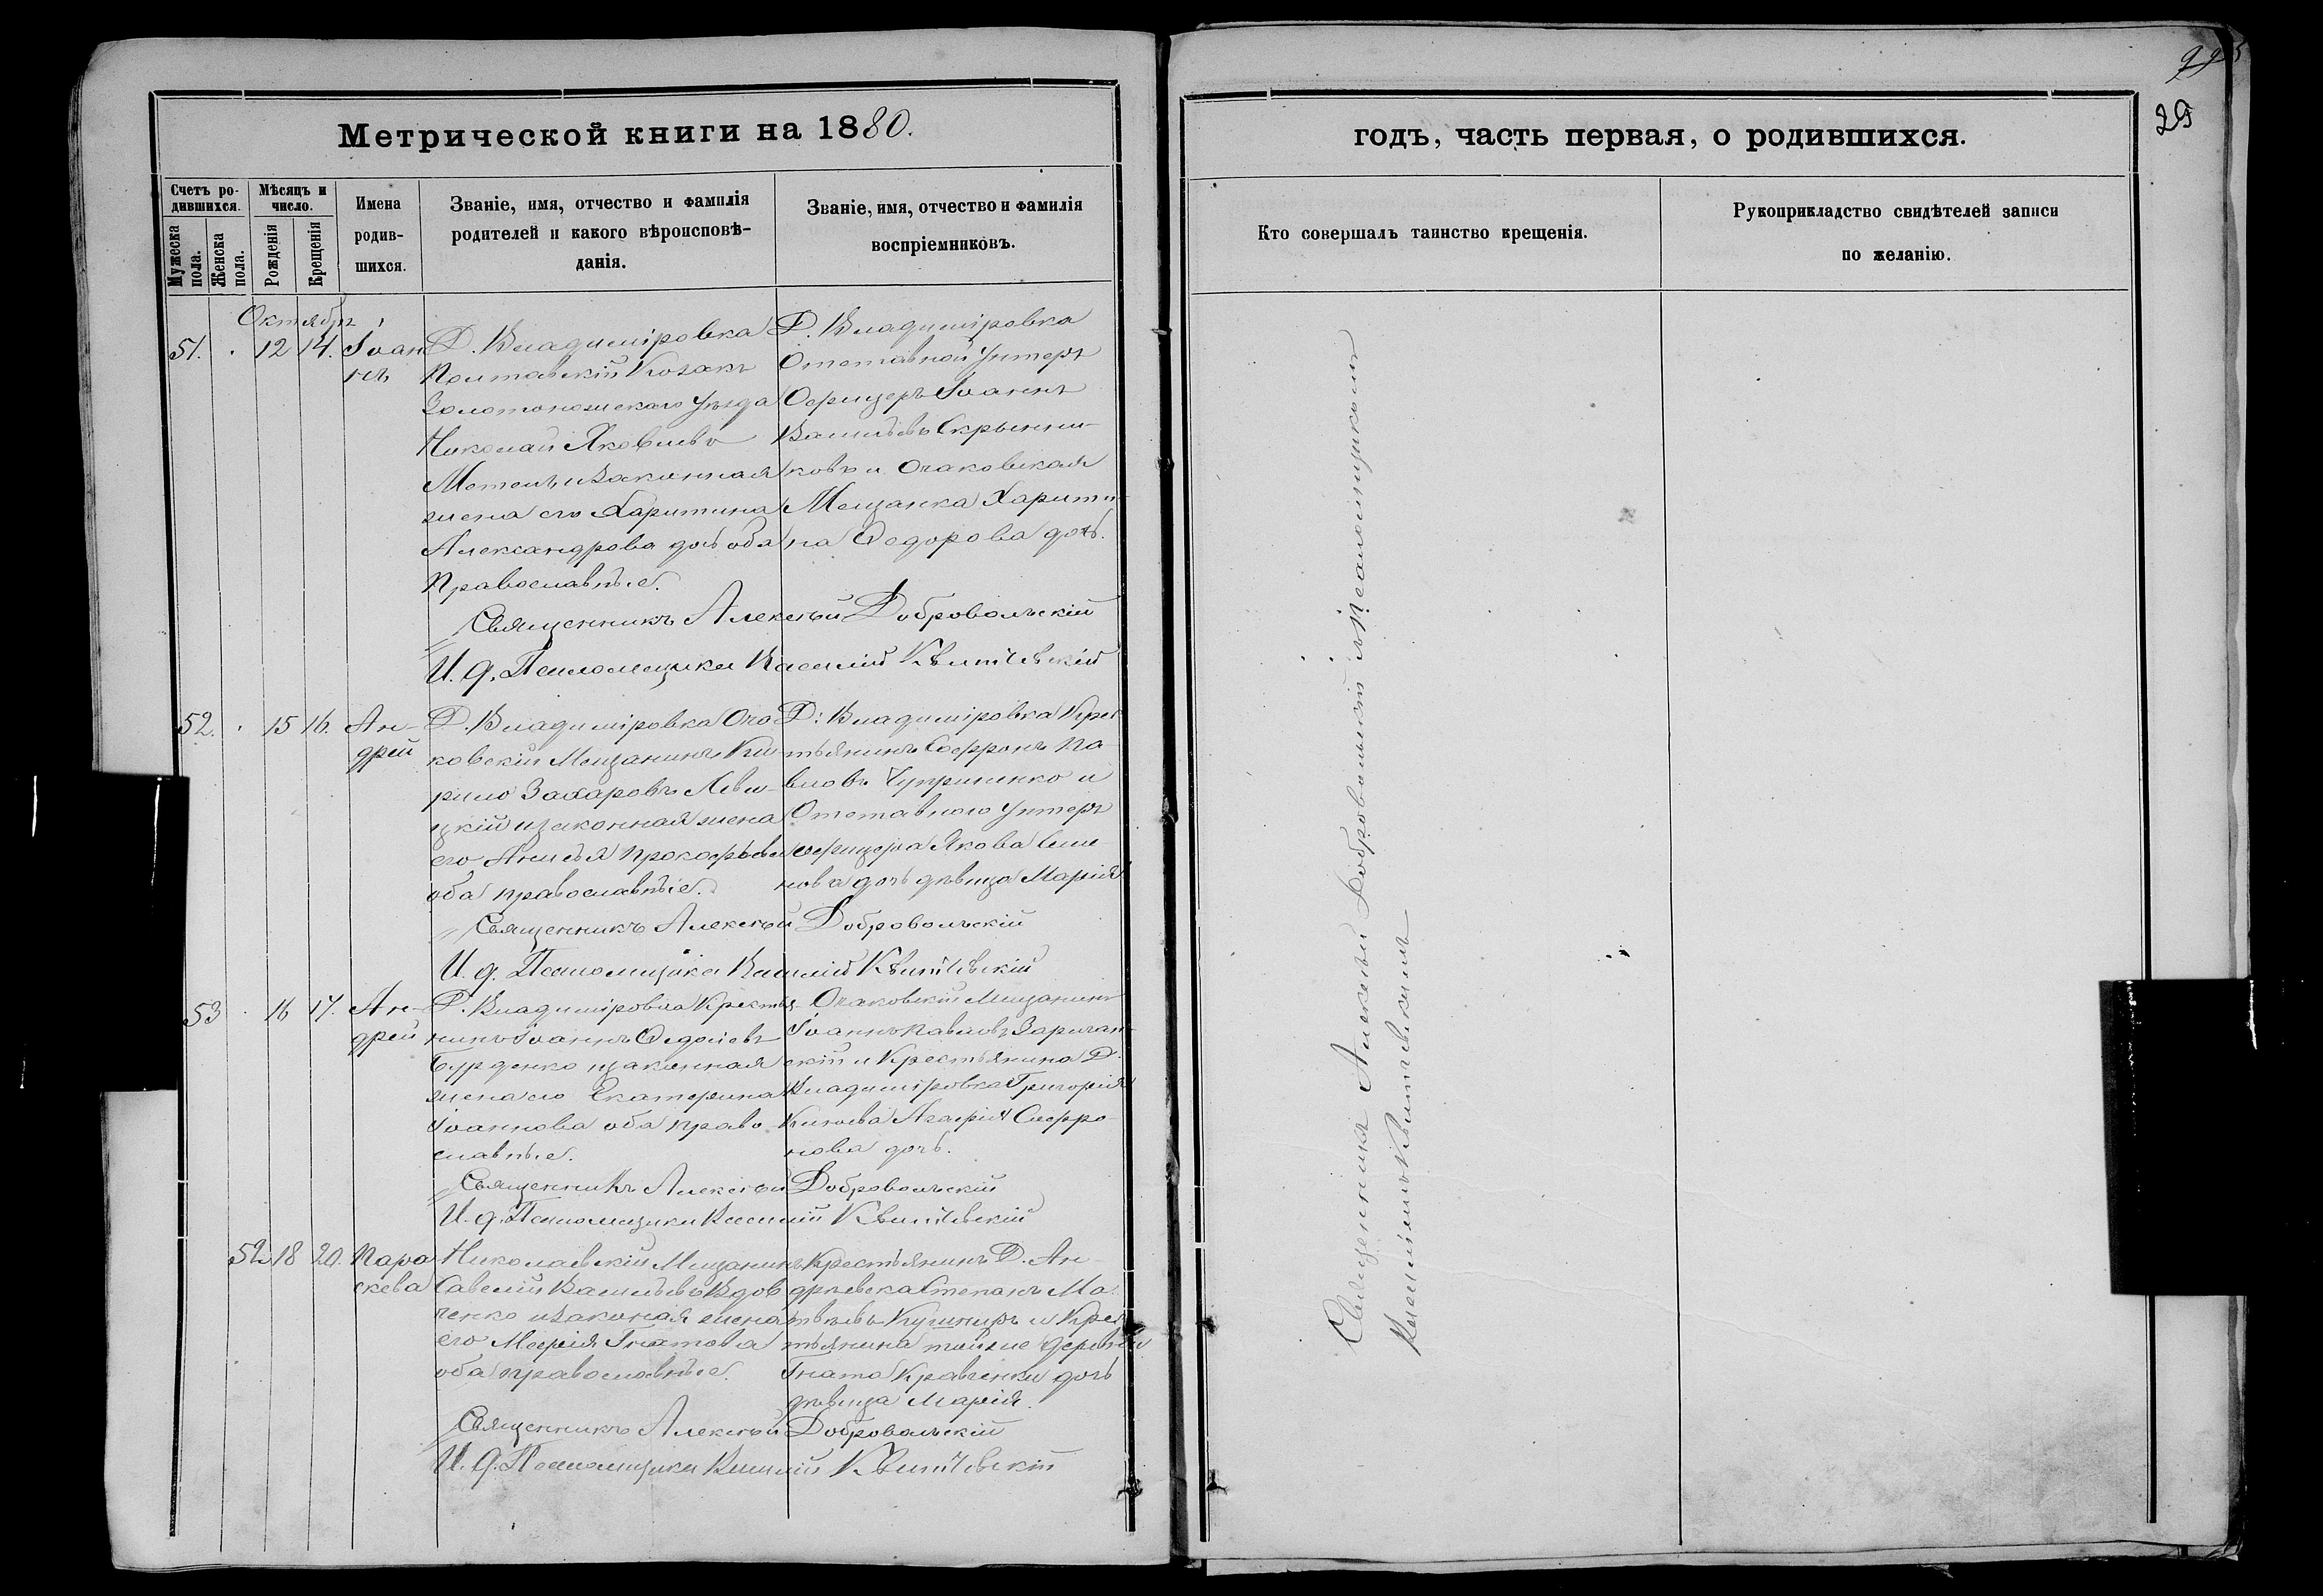 Метрической книги на 1880.
Счетъ ро-
дившихся.
Мужеска пола.
Женска пола.
Мѣсяцъ и
число.
Рожденія
Крещенія
Имена
родив-
шихся.
Званіе, имя, отчество и фамилія
родителей и какого вѣроисповѣ-
данія.
Званіе, имя, отчество и фамилія
воспріемниковъ.
Октябрь
51. 12 14. Іоан
нъ
Д. Владиміровка
Полтавскій Козакъ
Золотоношскаго уѣзда
Николай Яковлевъ
и законная
жена его Харитина
Александрова дочь оба
Православные.
Д. Владиміровка
Отставной Унтеръ
Офицеръ Іоаннъ
Васильевъ Скрынни-
ковъ и Очаковская
Мещанка Харити-
на Ѳедорова дочь.
Священникъ Алексѣй Добровольскій
И. д. Псаломщика Василій Квитчевскій
52. 15 16. Ан-
дрей
Д. Владиміровка Оча
ковскій Мещанинъ Ки-
рило Захаровъ Леви-
цкій и законная жена
его Прокофьева
оба православные.
Д: Владиміровка Крес
тьянинъ Софронъ Па
вловъ Чуприненко и
Отставного Унтеръ
офицера Якова Семе
нова дочь дѣвица Марія
Священникъ Алексѣй Добровольскій
И. д. Псаломщика Василій Квитчевскій
53 16 17. Ан-
дрей
Д. Владиміровка Крестья
нинъ Іоаннъ
Бурденко и законная
жена его Екатерина
Іоаннова оба право
славные.
Очаковскій Мещанинъ
Іоаннъ Павловъ Заричан-
скій и Крестьянина Д.
Владиміровка Григорія
Агафія Софро-
нова дочь.
Священникъ Алексѣй Добровольскій
И. д. Псаломщика Василій Квитчевскій
52 18 20. Пара
скева
Николаевскій Мещанинъ
Савелій Васильевъ Вдов
ченко и законная жена
его Марія Гнатова
оба православные.
Крестьянинъ Д. Ан-
дреевка Степанъ Ма
твѣевъ Кушниръ и Крес
тьянина той же деревни
Гната Кравченки дочь
дѣвица Марія.
Священникъ Алексѣй Добровольскій
И. д. Псаломщика Василій Квитчевскій
29
годъ, часть первая, о родившихся.
Кто совершалъ таинство крещенія.
Рукоприкладство свидѣтелей записи
по желанію.
Священникъ Алексѣй Добровольскій съ Псаломщикомъ
Василіемъ Квитчевскимъ